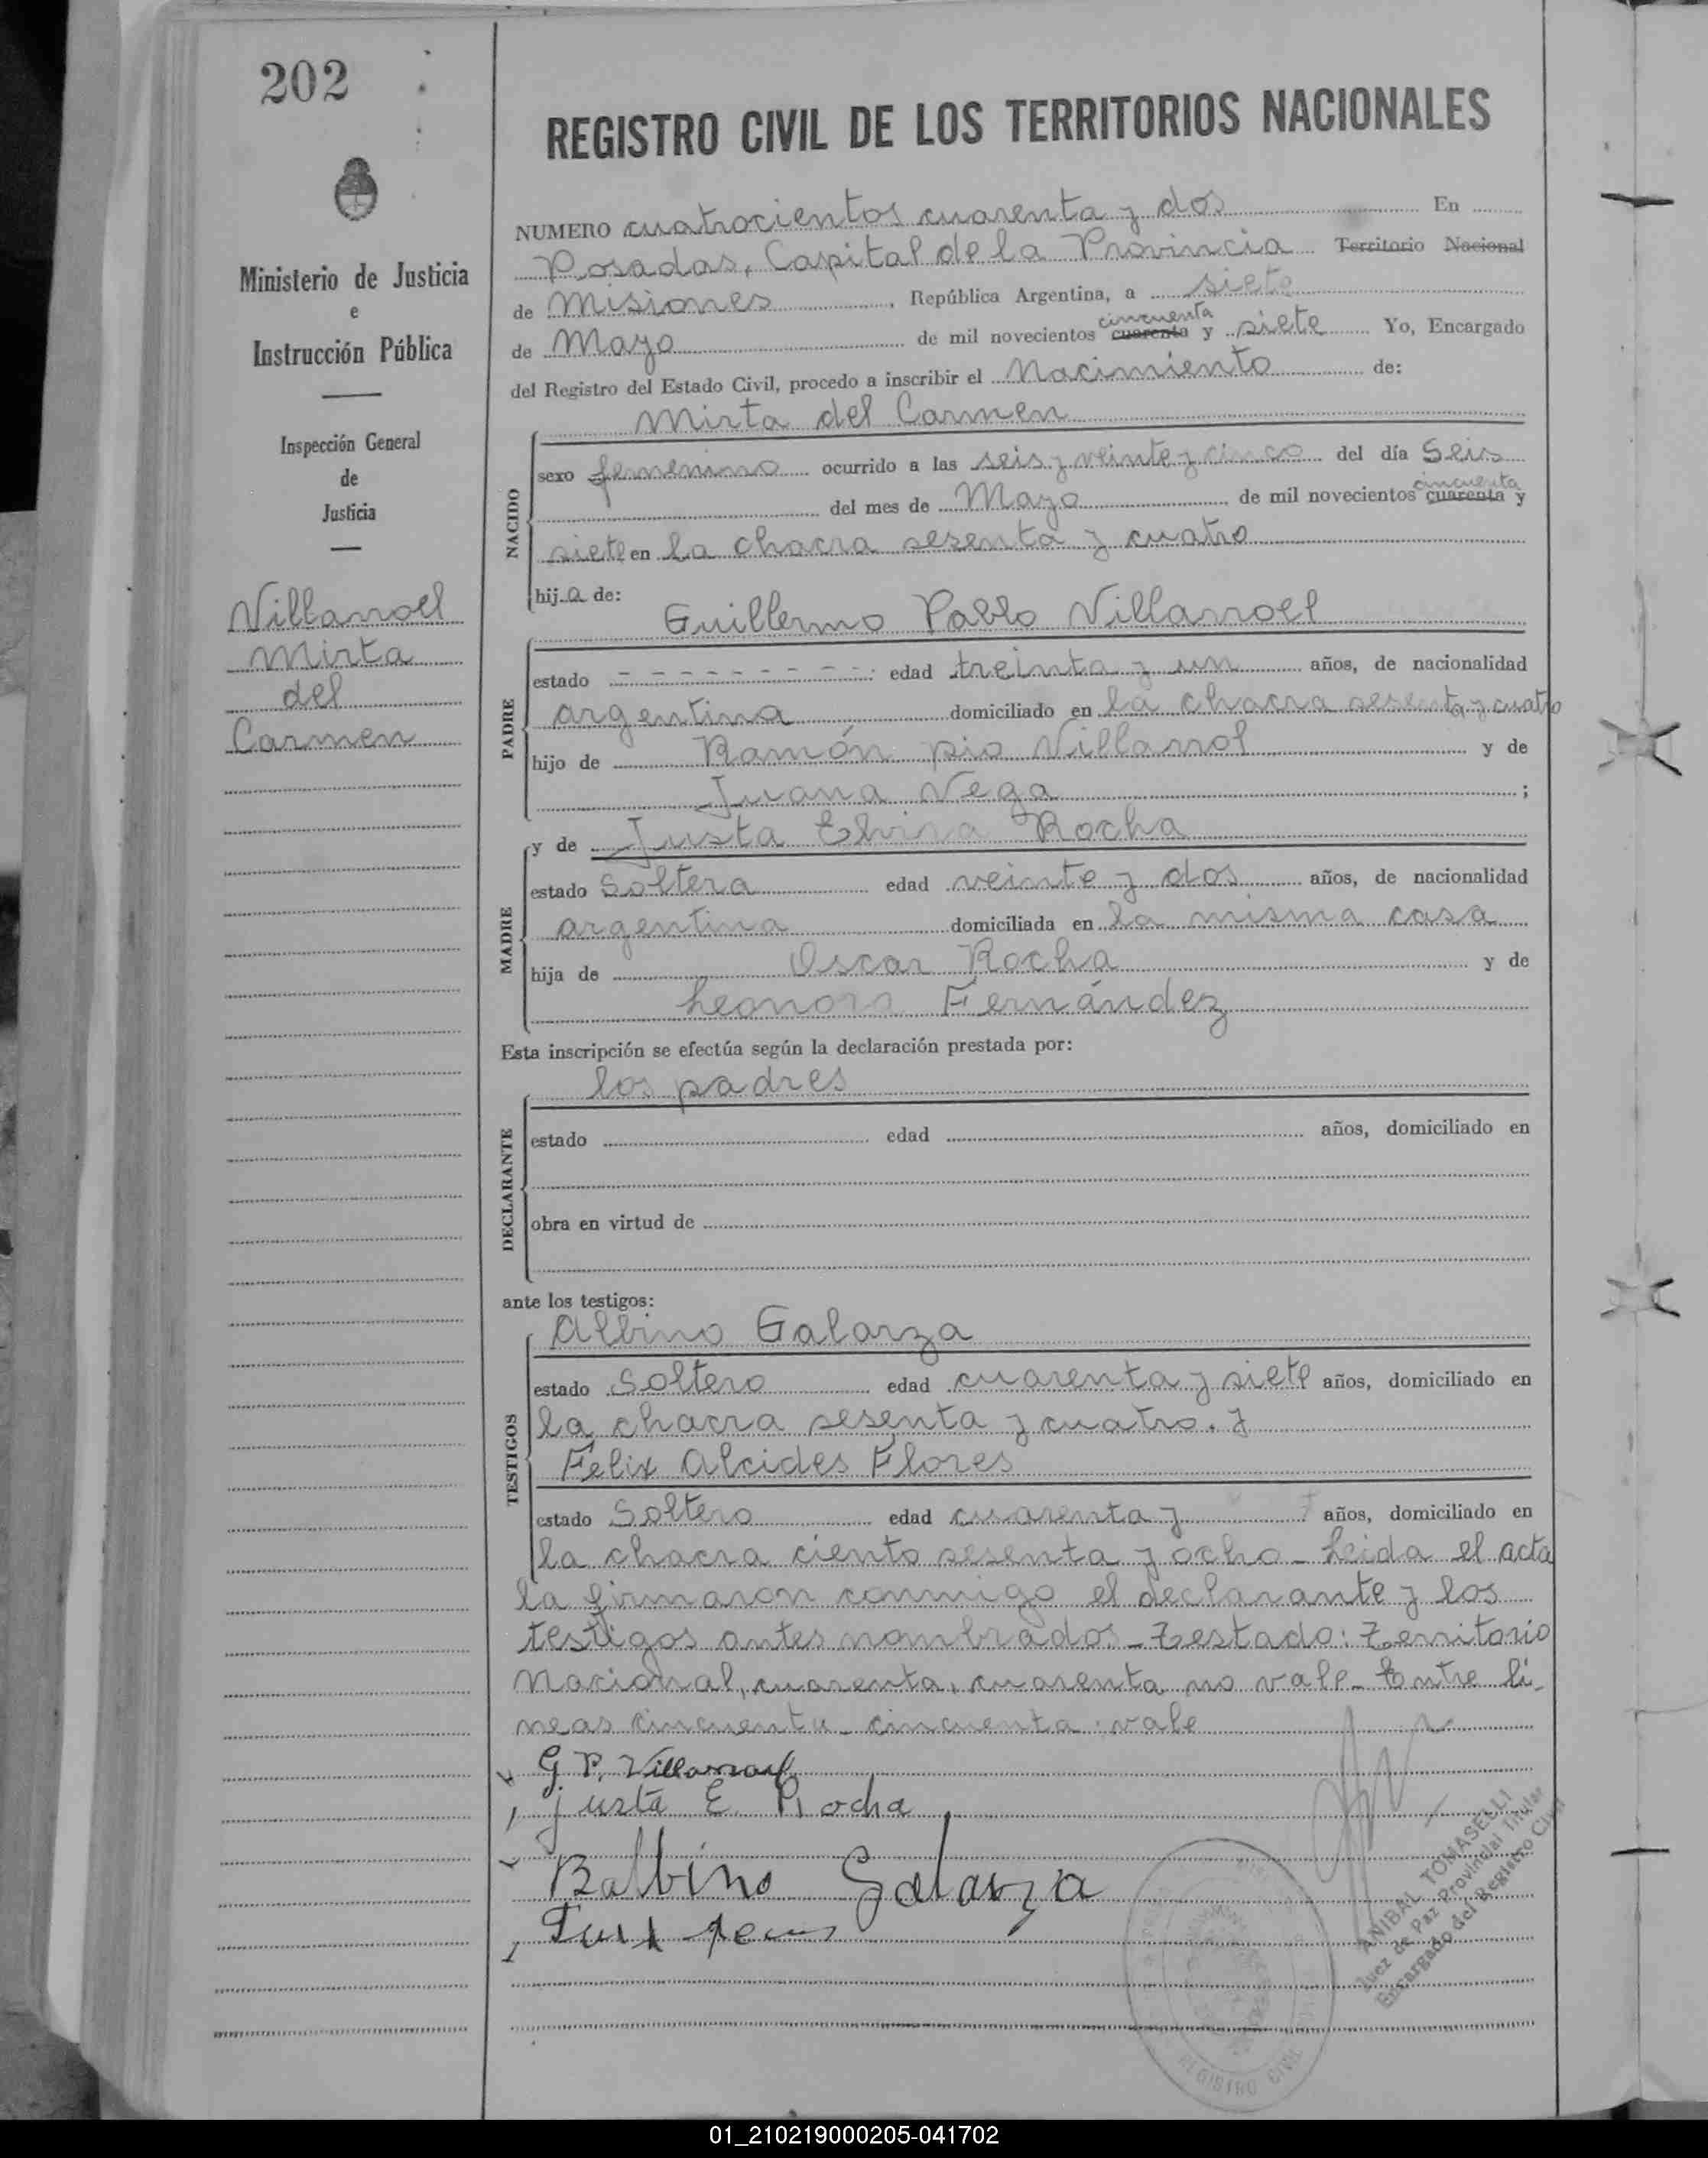 202
Ministerio de Justicia
e
Instrucción Pública
Inspección General
de
Justicia
Villarroel
Mirta
del
Carmen
REGISTRO CIVIL DE LOS TERRITORIOS NACIONALES
NUMERO cuatrocientos cuarenta y dos En
Posadas, Capital de la Provincia Territorio Nacional
de Misiones, República Argentina, a siete
cincuenta
de Mayo de mil novecientos cuarenta y siete Yo, Encargado
del Registro del Estado Civil, procedo a inscribir el Nacimiento de:
Mirta del Carmen
NACIDO
sexo femenino ocurrido a las seis y veinte y cinco del día Seis
cincuenta
del mes de Mayo de mil novecientos cuarenta y
siete en la chacra sesenta y cuatro
hija de:
Guillermo Pablo Villarroel
PADRE
estado - - - - - - - - - edad treinta y un años, de nacionalidad
argentina domiciliado en la chacra sesenta y cuatro
hijo de Ramón pio Villarrol y de
Juana Vega ;
y de Justa Elvira Rocha
MADRE
estado Soltera edad veinte y dos años, de nacionalidad
argentina domiciliada en la misma casa
hija de Oscar Rocha y de
Leonora Fernández
Esta inscripción se efectúa según la declaración prestada por:
los padres
DECLARANTE
estado edad años, domiciliado en
obra en virtud de
ante los testigos:
Albino Galarza
TESTIGOS
estado Soltero edad cuarenta y siete años, domiciliado en
la chacra sesenta y cuatro. y
Felix Alcides Flores
estado Soltero edad cuarenta y años, domiciliado en
la chacra ciento sesenta y ocho - Leida el acta
la firmaron conmigo el declarante y los
testigos antes nombrados - Testado: Territorio
Nacional, cuarenta, cuarenta no vale - Entre li-
neas cincuenta - cincuenta: vale
G. P. Villarroel
Justa E. Rocha
Balbino Galarza
ANIBAL TOMASELLI
Juez de Paz Provincial Titular
Encargado del Registro Civil
REGISTRO CIVIL
01_210219000205-041702